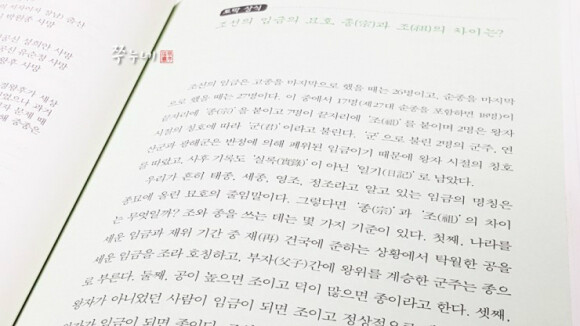 토막 상식
조선의 임금의 묘호, 종(宗)과 조(祖)의 차이는?
쭈누네
조선의 임금은 고종을 마지막으로 했을 때는 26명이고, 순종을 마지막
으로 했을 때는 27명이다. 이 중에서 17명(제27대 순종을 포함하면 18명)이
끝자리에 '종(宗)'을 붙이고 7명이 끝자리에 '조(祖)'를 붙이며 2명은 왕자
시절의 칭호에 따라 '군(君)'이라고 불린다. '군'으로 불린 2명의 군주, 연
산군과 광해군은 반정에 의해 폐위된 임금이기 때문에 왕자 시절의 칭호
를 따랐고, 사후 기록도 '실록(實錄)'이 아닌 '일기(日記)'로 남았다.
우리가 흔히 태종, 세종, 영조, 정조라고 알고 있는 임금의 명칭은
종묘에 올린 묘호의 줄임말이다. 그렇다면 '종(宗)'과 '조(祖)'의 차이
는 무엇일까? 조와 종을 쓰는 데는 몇 가지 기준이 있다. 첫째, 나라를
세운 임금과 재위 기간 중 재(再) 건국에 준하는 상황에서 탁월한 공을
세운 임금을 조라 호칭하고, 부자(父子)간에 왕위를 계승한 군주는 종으
로 부른다. 둘째, 공이 높으면 조이고 덕이 많으면 종이라고 한다. 셋째,
왕자가 아니었던 사람이 임금이 되면 조이고 정상적으로
자가 임금이 되면 종이다.